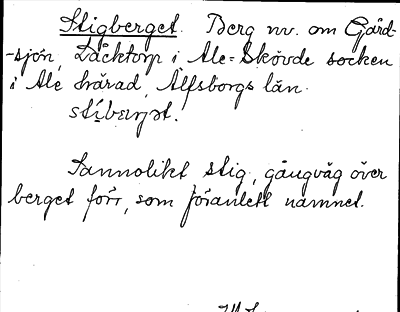 Stigberget. Berg nv. om Gärd-
-sjön, Däcktorp i Ale-Skövde socken
i Ale härad, Älfsborgs län.
Sannolikt stig, gångväg över
berget förr, som föranlett namnet.